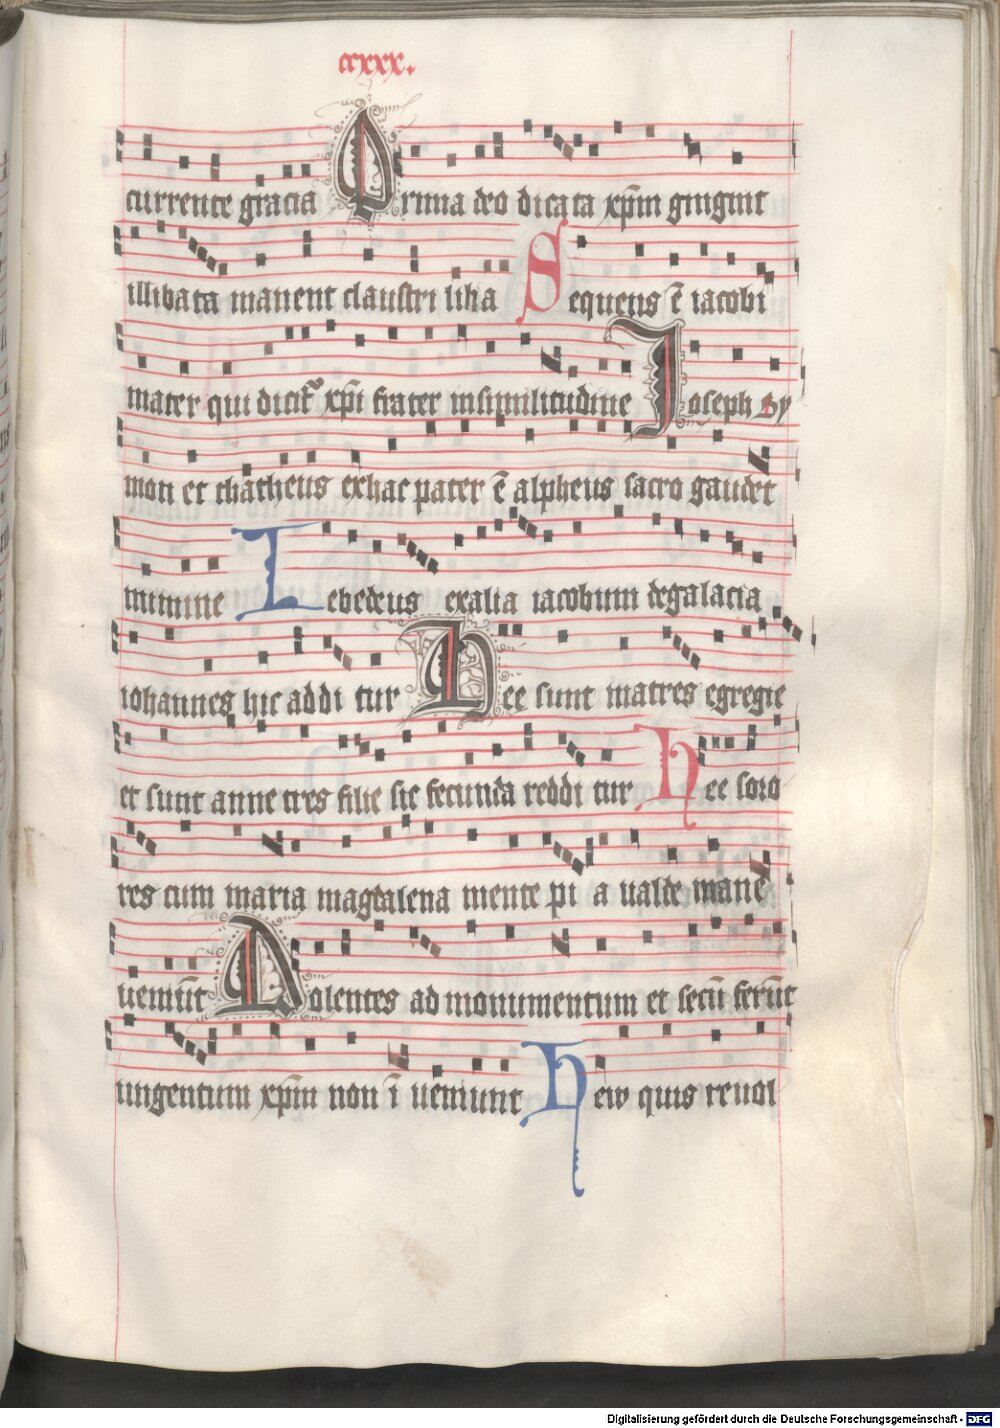 ccxxx.
currente gracia Prima deo dicata xp̄m gingnit
illibata manent claustri lilia Sequens ē iacobi
mater qui dicit᷑ xp̄i frater insimilitudine Joseph Sy
mon et thatheus exhac pater ē alpheus sacro gaudet
munine Zebedeus exalia iacobum degalacia
iohannes hic addi tur Hee sunt matres egregie
et sunt anne tres filie sic fecunda reddi tur Hee soro
res cum maria magdalena mente pi a ualde mane
ueniūt Dolentes ad monumentum et secū ferūt
ungentum xp̄m non ī ueniunt Hew quis reuol
Digitalisierung gefördert durch die Deutsche Forschungsgemeinschaft - DFG